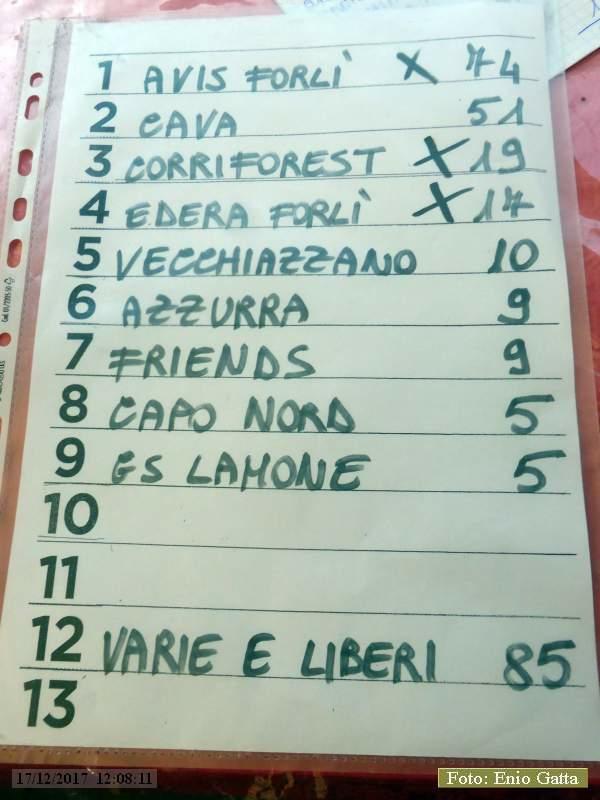 1 AVIS FORLÌ X 74
2 CAVA 51
3 CORRIFOREST X 19
4 EDERA FORLÌ X 17
5 VECCHIAZZANO 10
6 AZZURRA 9
7 FRIENDS 9
8 CAPO NORD 5
9 GS LAMONE 5
10
11
12 VARIE E LIBERI 85
13
17/12/2017 12:08:11
Foto: Enio Gatta